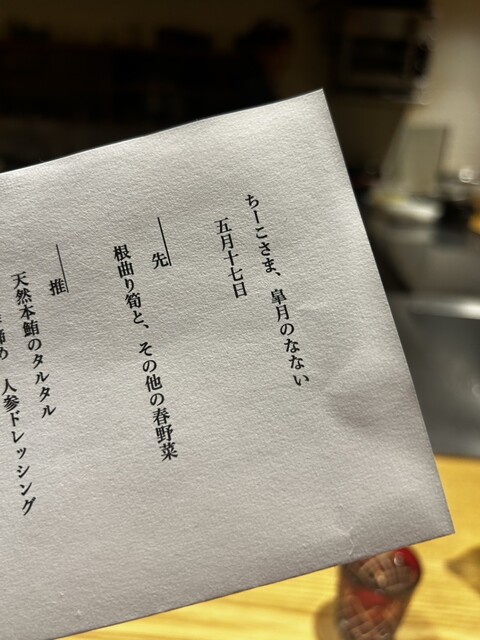 ちーこさま、皐月のなない
五月十七日
先
根曲り筍と、その他の春野菜
推
天然本鮪のタルタル
締め 人参ドレッシング